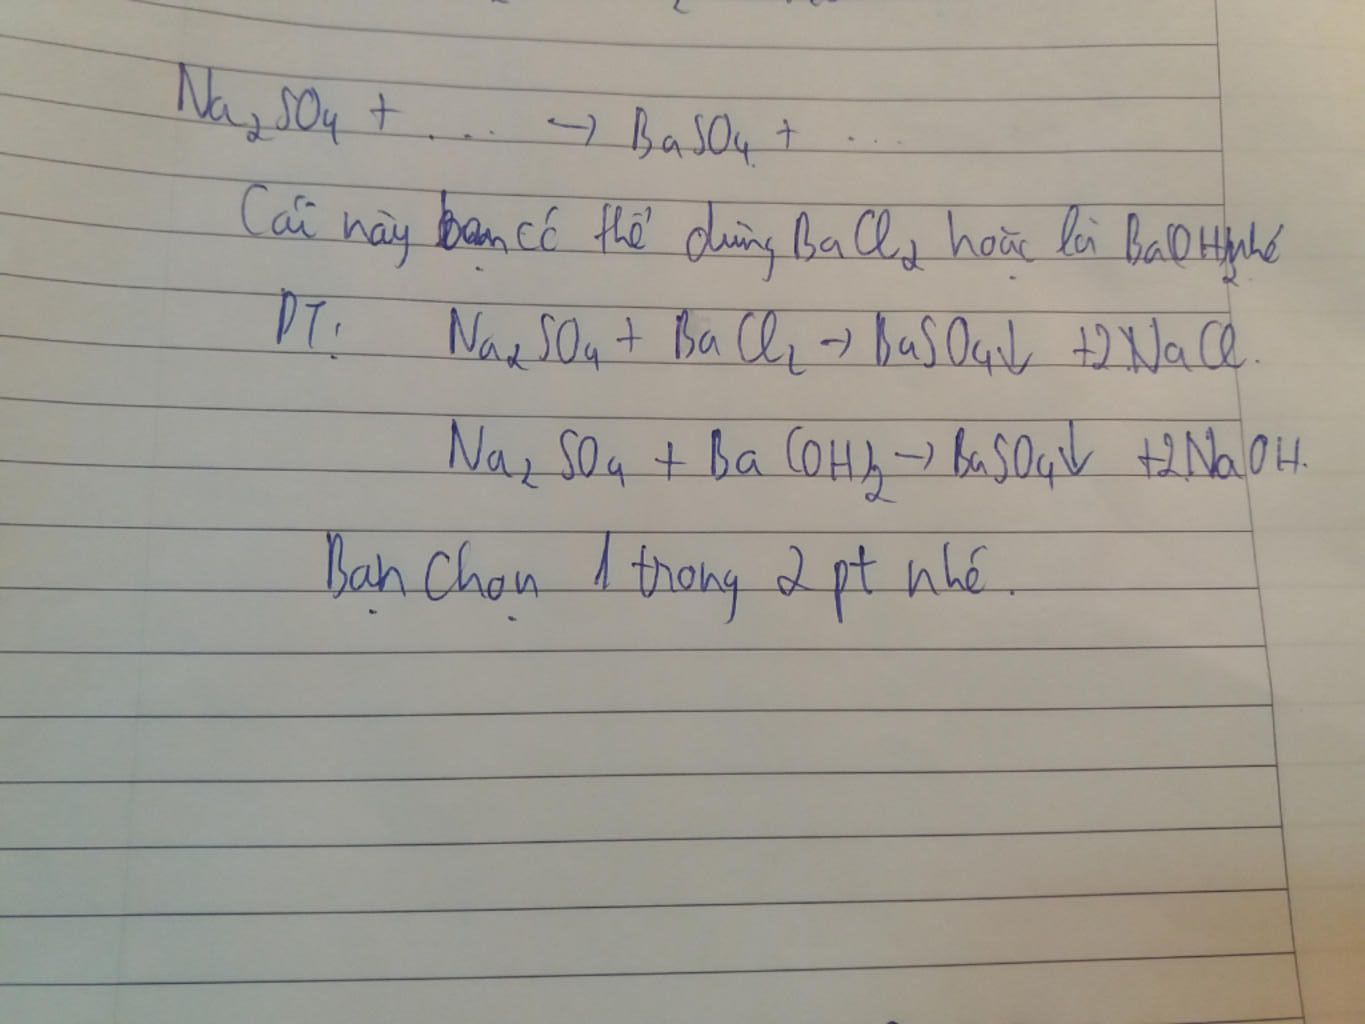 Na₂SO₄ + .... → BaSO₄ + ....
Cái này bạn có thể dùng BaCl₂ hoặc là Ba(OH)₂ nhé
PT: Na₂SO₄ + BaCl₂ → BaSO₄↓ +2NaCl.
Na₂SO₄ + Ba(OH)₂ → BaSO₄↓ +2NaOH.
Bạn chọn 1 trong 2 pt nhé.